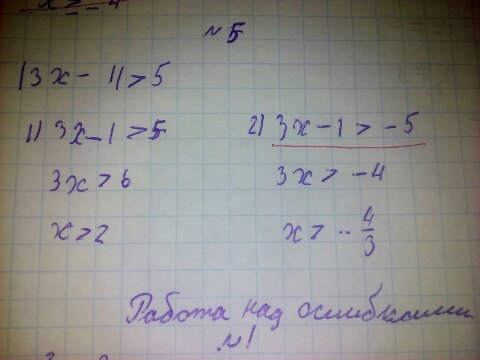 № 5
|3x - 1| > 5
1) 3x - 1 > 5
3x > 6
x > 2
2) 3x - 1 > -5
3x > -4
x > -4/3
Работа над ошибками
№1